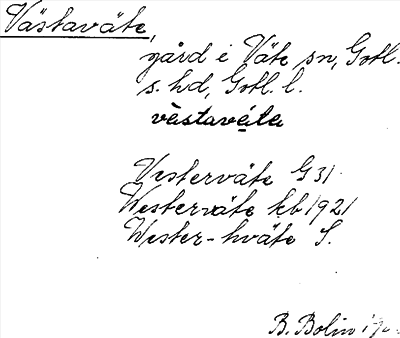 Västaväte,
gård i Väte sn, Gotl.
s. hd, Gotl. l.
västavätę
Vesterväte G 31
Westerväte kb 1921
Wester-hväte S.
B. Bolin